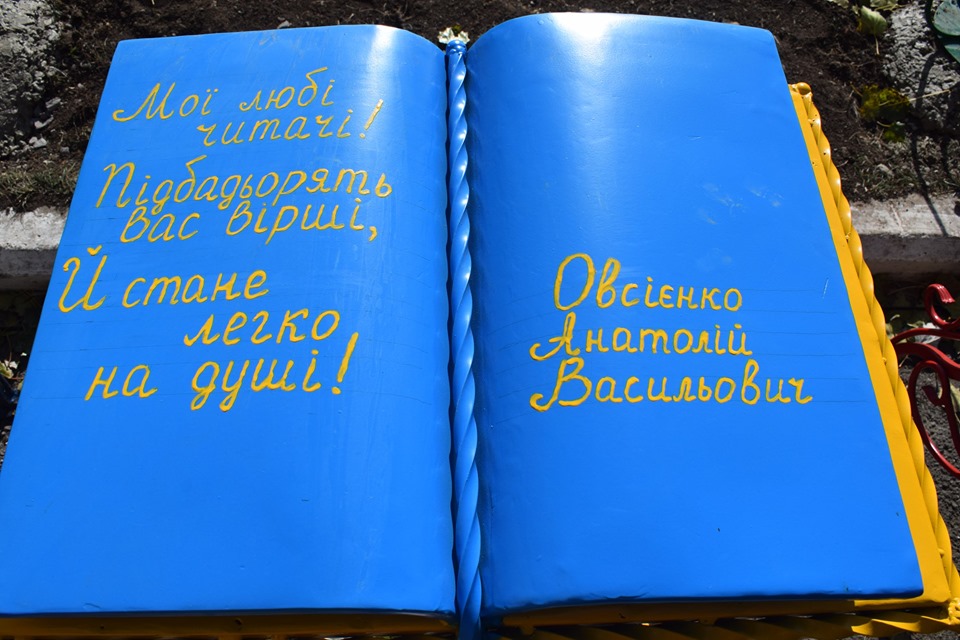 Мої любі
читачі!
Підбадьорять
вас вірші,
Й стане
легко
на душі!
Овсієнко
Анатолій
Васильович